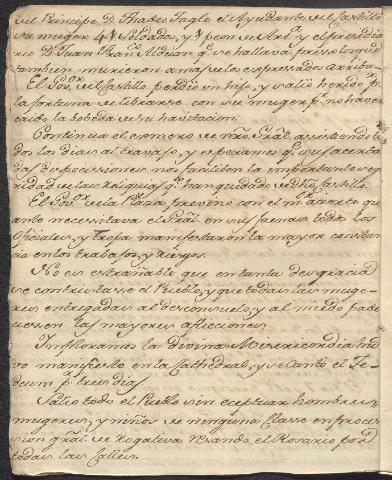 del Principe D. Thadeo Tagle el Ayudante del Castillo
su muger 4 Soldados, y
rio D. Juan Aldean q.e se hallava preso en el
tambien murieron a mas de los expressados arriba.
El Gov.or del Castillo perdio un hijo, y salió herido p.r
la fortuna de librarse con su muger p.r no haver
caido la bobeda de su havitacion.
Continua el esmero de nro Gral. assistiendo to
dos los dias al travajo, y esperamos q.e sus acerta
das disposiciones nos faciliten la importante segu
ridad de las reliquias q.e han quedado de dho Castillo.
El Gov.or de la Plaza previno con el m.or acierto qu
anto necessitava el Gral. en sus faenas todos los
Oficiales, y tropa manifestaron la mayor constan
cia en los trabajos, y riesgos.
No es estrañable que en tanta desgracia
se contristase el Pueblo, y que todas las muge
res entregadas al desconsuelo, y al miedo pade
ciesen las mayores aflicciones.
Imploramos la Divina Misericordia hu
vo manifiesto en la Cathedral, y se canto el Te
deum p.r tres dias.
Salio todo el Pueblo sin eceptuar hombres,
mugeres, y niños de ninguna Classe en proce
sion gral. de Rogativa resando el Rosario por
todas las Calles.